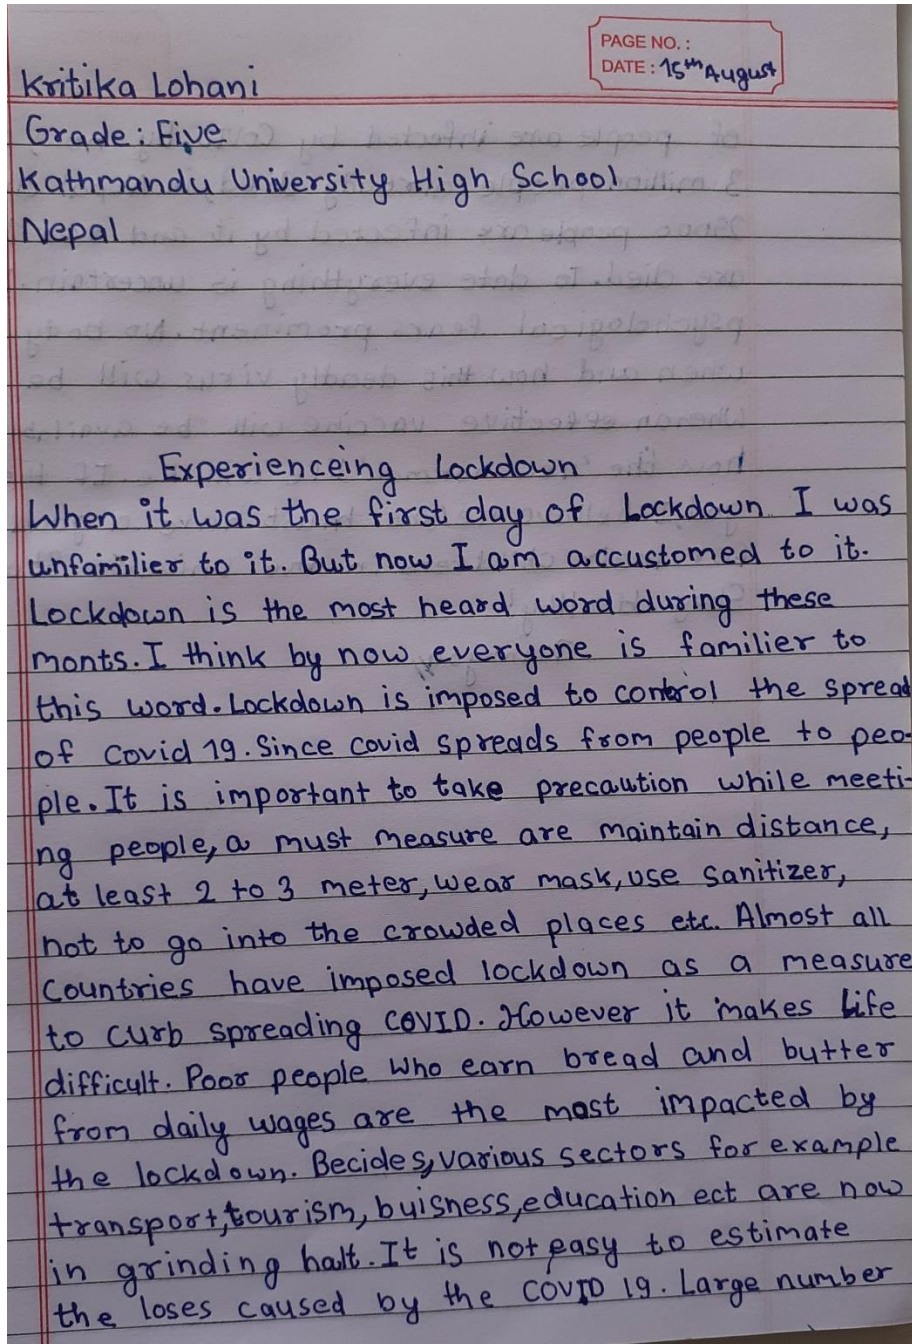 PAGE NO. :
DATE : 15th August
Kritika Lohani
Grade : Five
Kathmandu University High School
Nepal
Experienceing Lockdown
When it was the first day of Lockdown I was
unfamilier to it. But now I am accustomed to it.
Lockdown is the most heard word during these
monts. I think by now everyone is familier to
this word. Lockdown is imposed to control the spread
of Covid 19. Since covid spreads from people to peo-
ple. It is important to take precaution while meeti-
ng people, a must measure are maintain distance,
at least 2 to 3 meter, wear mask, use sanitizer,
not to go into the crowded places etc. Almost all
Countries have imposed lockdown as a measure
to curb spreading COVID. However it makes life
difficult. Poor people who earn bread and butter
from daily wages are the most impacted by
the lockdown. Becides, various sectors for example
transport, tourism, buisness, education ect are now
in grinding halt. It is not easy to estimate
the loses caused by the COVID 19. Large number